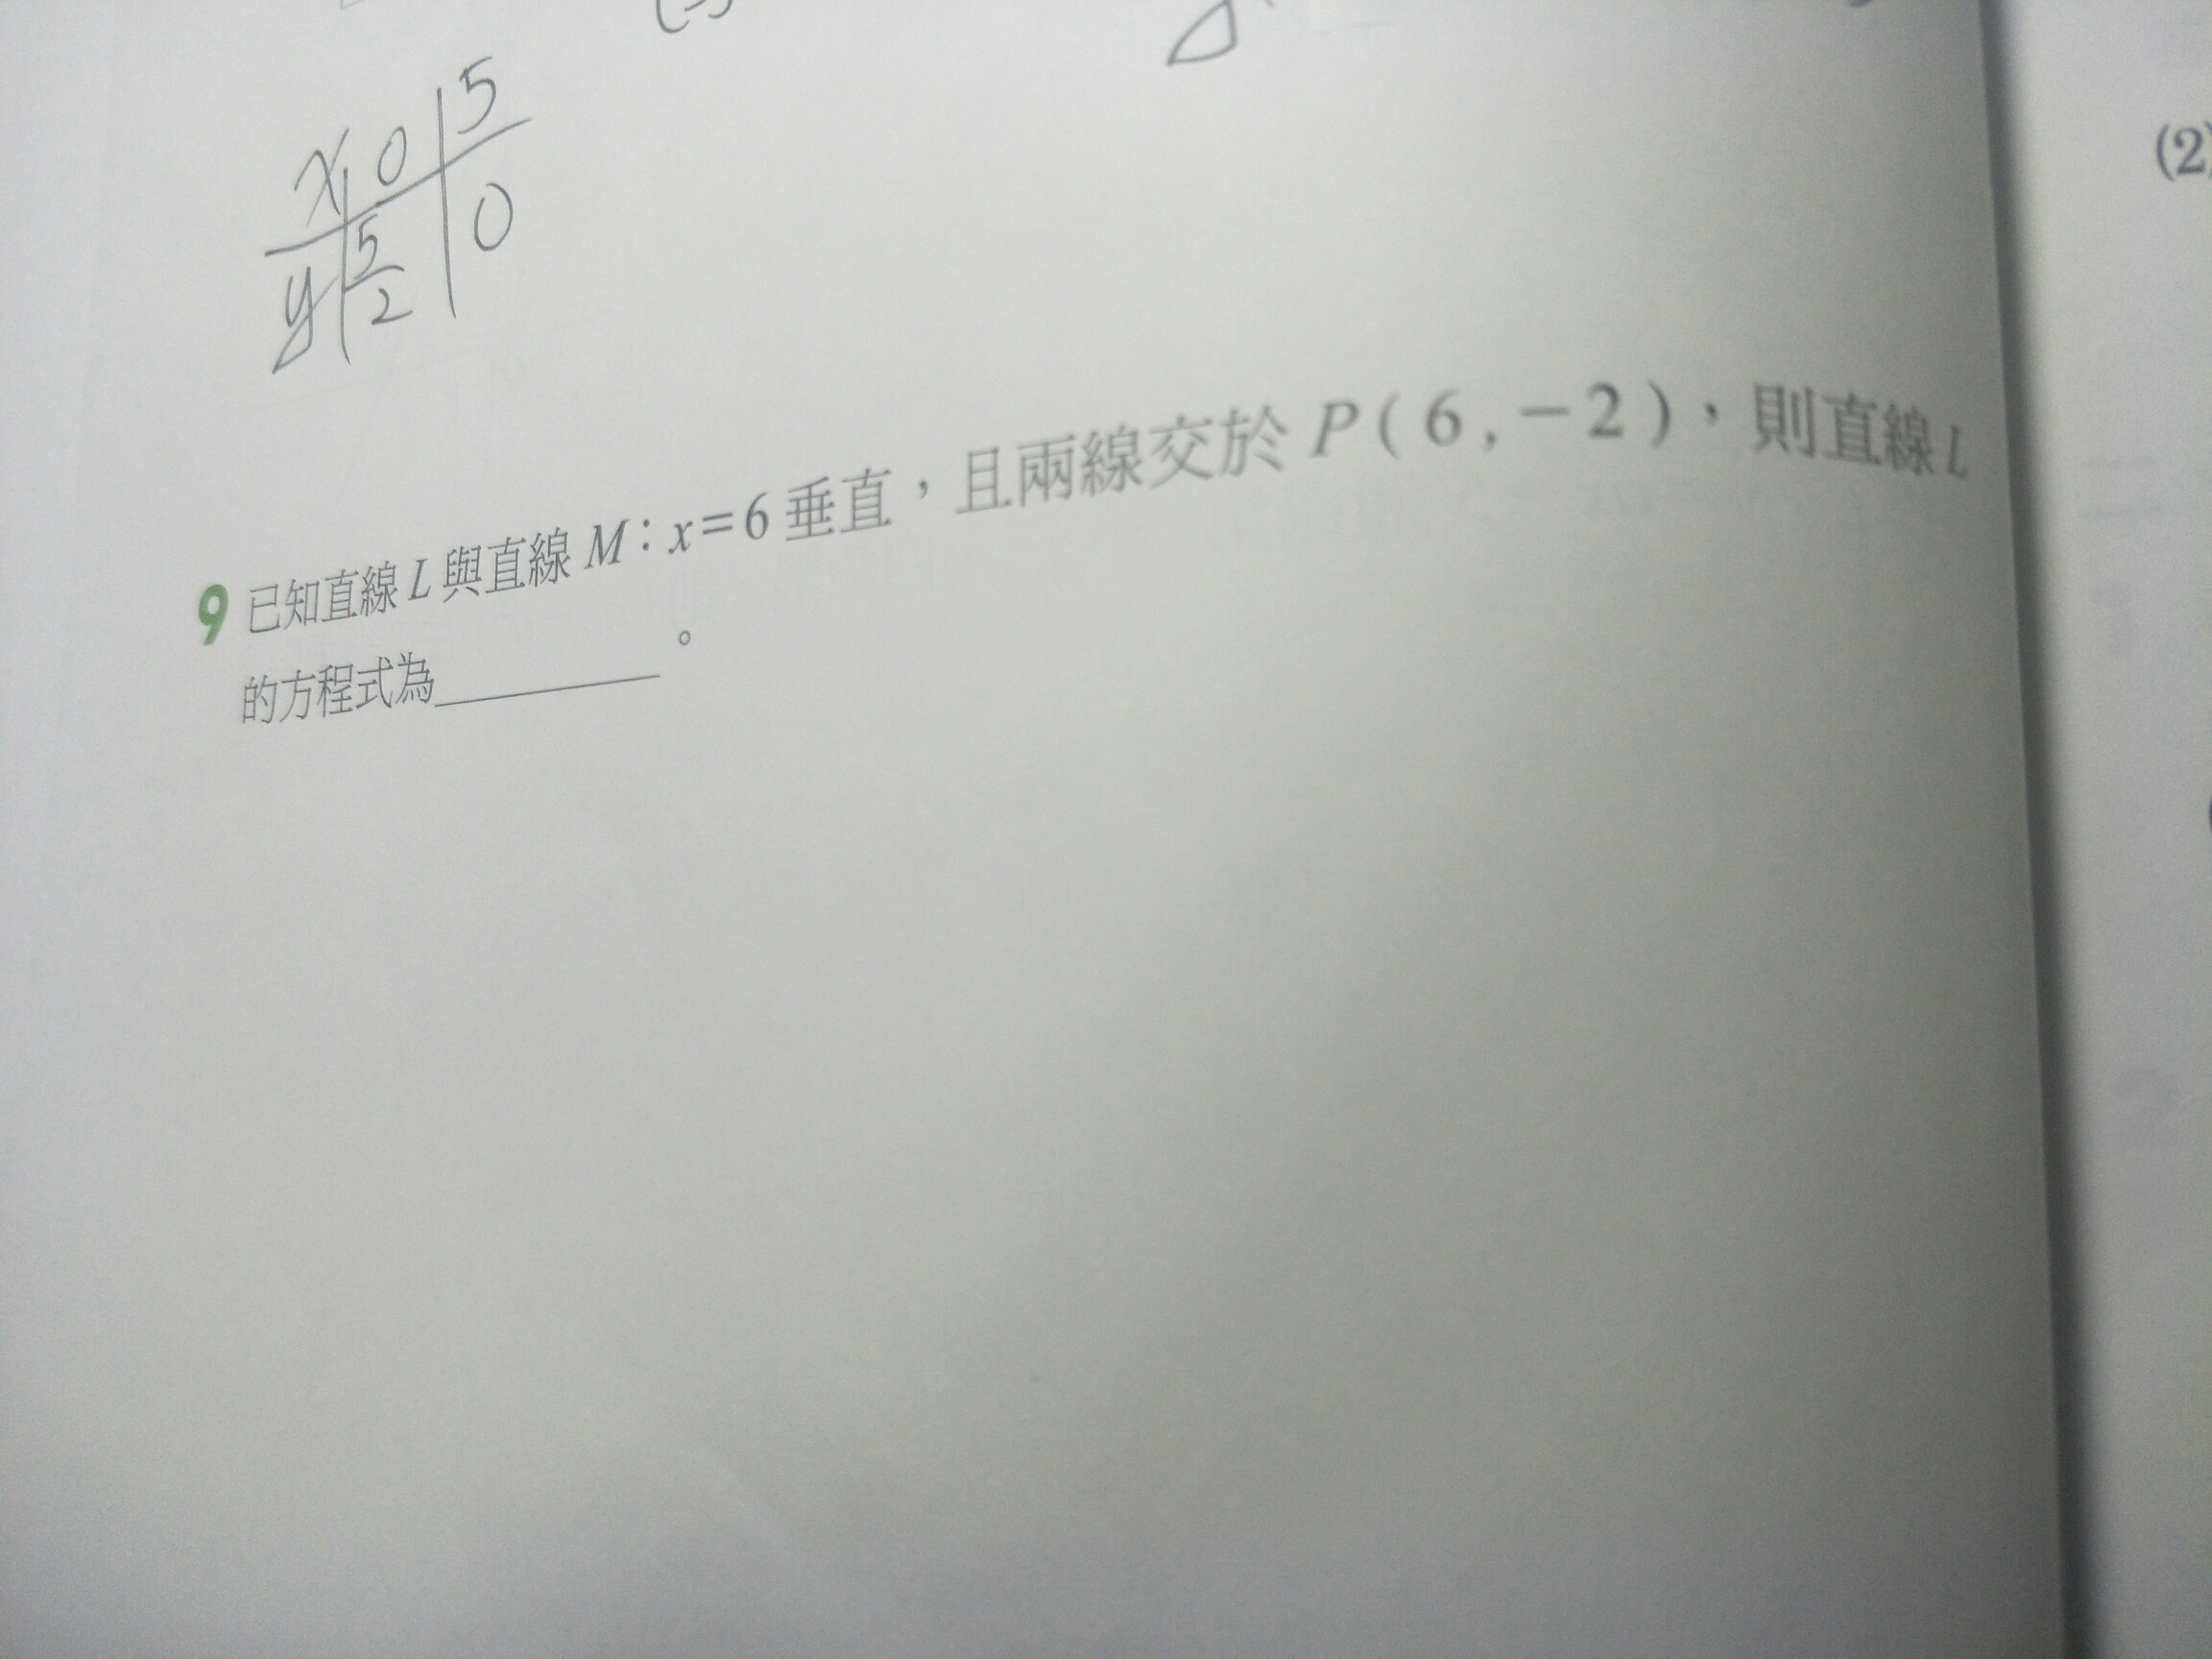 x 0 5
y 5/2 0
(2)
9 已知直線 L 與直線 M：x=6 垂直，且兩線交於 P ( 6 , -2 )，則直線 L
的方程式為＿＿＿＿＿。